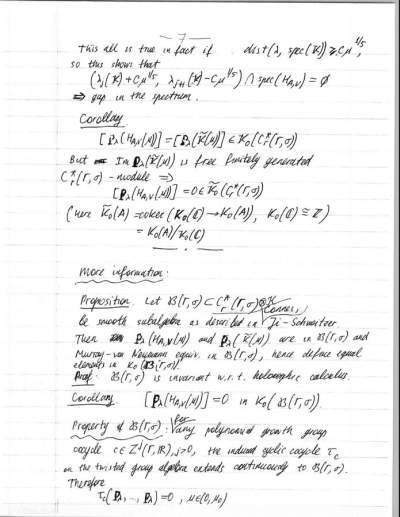 - 7 -
This all is true in fact if dist(λ, spec(K)) ≥ Cμ^{1/5},
so this shows that
(λ_j(K)+Cμ^{1/5}, λ_{j+1}(K)-Cμ^{1/5}) ∩ spec(H_{A,V}) = ∅
⇒ gap in the spectrum.
Corollary
[p_λ(H_{A,V}(μ))] = [p_λ(K̃(μ))] ∈ K_0(C_r^*(Γ,σ))
But Im p_λ(K̃(μ)) is free finitely generated
C_r^*(Γ,σ) - module ⇒
[p_λ(H_{A,V}(μ))] = 0 ∈ K̃_0(C_r^*(Γ,σ))
(here K̃_0(A) = coker(K_0(ℂ) → K_0(A)), K_0(ℂ) ≅ ℤ)
= K_0(A)/K_0(ℂ)
More information:
Proposition. Let B(Γ,σ) ⊂ C_r^*(Γ,σ)⊗K
be smooth subalgebra as described in Connes, Ji-Schweitzer.
Then p_λ(H_{A,V}(μ)) and p_λ(K̃(μ)) are in B(Γ,σ) and
Murray-von Neumann equiv. in B(Γ,σ), hence define equal
elements in K_0(B(Γ,σ)).
Proof. B(Γ,σ) is invariant w.r.t. holomorphic calculus.
Corollary [p_λ(H_{A,V}(μ))] = 0 in K̃_0(B(Γ,σ))
Property of B(Γ,σ): for any polynomial growth group
cocycle c ∈ Z^j(Γ,ℝ), j>0, the induced cyclic cocycle τ_c
on the twisted group algebra extends continuously to B(Γ,σ).
Therefore
τ_c(p_λ, ..., p_λ) = 0, μ ∈ (0, μ_0)